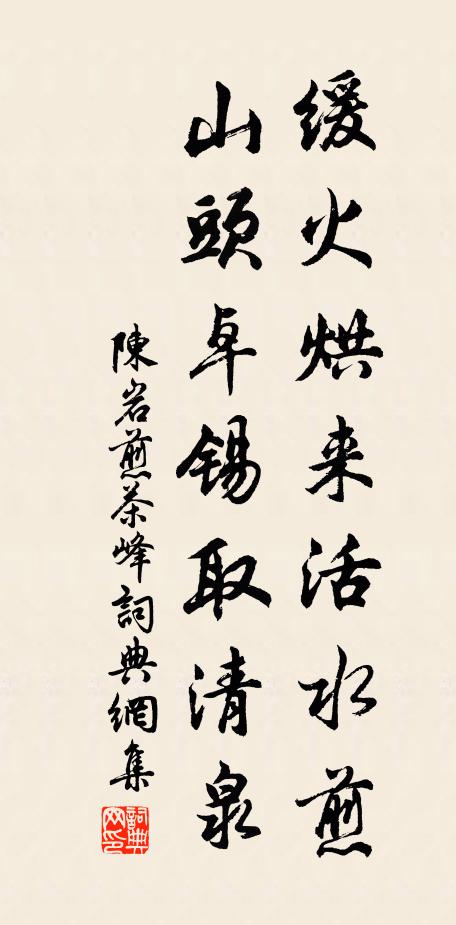 緩火烘来活水煎
山頭卓錫取清泉
陳岩煎茶峰詞典網集
詞典网印